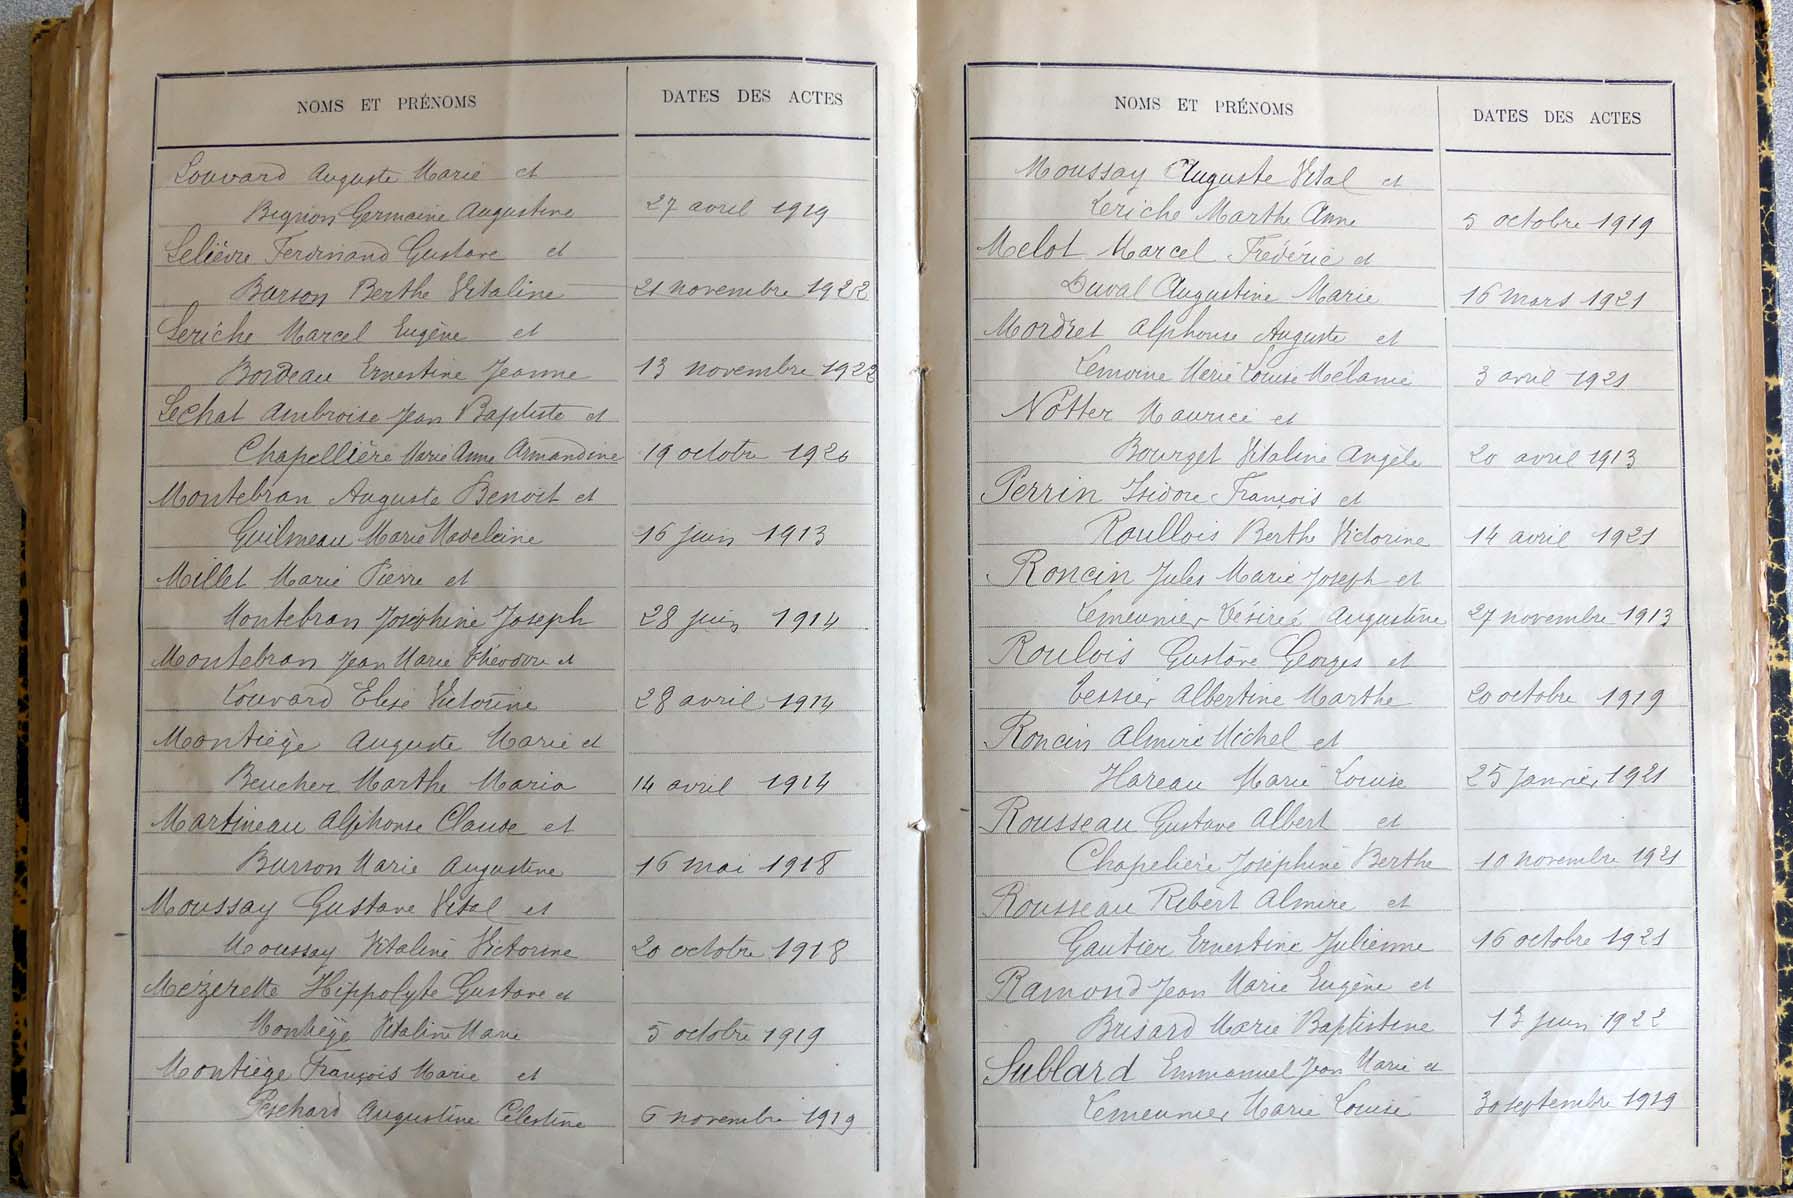 NOMS ET PRÉNOMS DATES DES ACTES
Louvard Auguste Marie et
Bignon Germaine Augustine 27 avril 1919
Lelièvre Ferdinand Gustave et
Burson Berthe Vitaline 21 novembre 1922
Leriche Marcel Eugène et
Bordeau Ernestine Jeanne 13 novembre 1922
Lechat Ambroise Jean Baptiste et
Chapellière Marie Anne Armandine 19 octobre 1920
Montebran Auguste Benoit et
Guilmeau Marie Madeleine 16 juin 1913
Millet Marie Pierre et
Montebran Joséphine Joseph 28 juin 1914
Montebran Jean Marie Théodore et
Louvard Elise Victorine 28 avril 1914
Montiège Auguste Marie et
Beucher Marthe Maria 14 avril 1914
Martineau Alphonse Claude et
Burson Marie Augustine 16 mai 1918
Moussay Gustave Vital et
Moussay Vitaline Victorine 20 octobre 1918
Mézerette Hippolyte Gustave et
Montiège Vitaline Marie 5 octobre 1919
Montiège François Marie et
Peschard Augustine Célestine 6 novembre 1919
NOMS ET PRÉNOMS DATES DES ACTES
Moussay Auguste Vital et
Leriche Marthe Anne 5 octobre 1919
Melot Marcel Frédéric et
Duval Augustine Marie 16 mars 1921
Mordret Alphonse Auguste et
Lemoine Marie Louise Mélanie 3 avril 1921
Notter Maurice et
Bourget Vitaline Angèle 20 avril 1913
Perrin Isidore François et
Roullois Berthe Victorine 14 avril 1921
Roncin Jules Marie Joseph et
Lemeunier Désirée Augustine 27 novembre 1913
Roulois Gustave Georges et
Tessier Albertine Marthe 20 octobre 1919
Roncin Almire Michel et
Hareau Marie Louise 25 Janvier 1921
Rousseau Gustave Albert et
Chapelière Joséphine Berthe 10 novembre 1921
Rousseau Robert Almire et
Gautier Ernestine Julienne 16 octobre 1921
Ramond Jean Marie Eugène et
Brisard Marie Baptistine 13 juin 1922
Sublard Emmanuel Jean Marie et
Lemeunier Marie Louise 30 septembre 1919